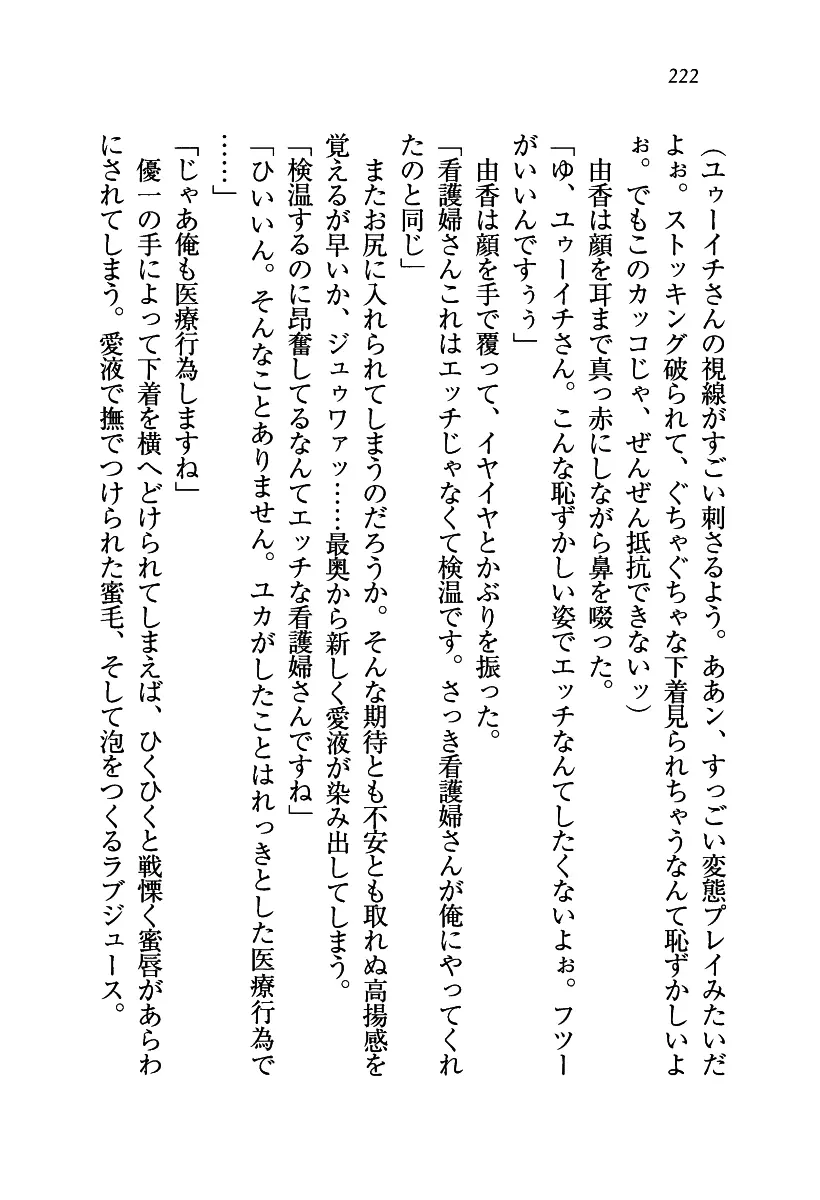 222
（ユゥーイチさんの視線がすごい刺さるよう。ああン、すっごい変態プレイみたいだ
よぉ。ストッキング破られて、ぐちゃぐちゃな下着見られちゃうなんて恥ずかしいよ
ぉ。でもこのカッコじゃ、ぜんぜん抵抗できないッ）
　由香は顔を耳まで真っ赤にしながら鼻を啜った。
「ゆ、ユゥーイチさん。こんな恥ずかしい姿でエッチなんてしたくないよぉ。フツー
がいいんですぅぅ」
　由香は顔を手で覆って、イヤイヤとかぶりを振った。
「看護婦さんこれはエッチじゃなくて検温です。さっき看護婦さんが俺にやってくれ
たのと同じ」
　またお尻に入れられてしまうのだろうか。そんな期待とも不安とも取れぬ高揚感を
覚えるが早いか、ジュゥワァッ……最奥から新しく愛液が染み出してしまう。
「検温するのに昂奮してるなんてエッチな看護婦さんですね」
「ひいいん。そんなことありません。ユカがしたことはれっきとした医療行為で
……」
「じゃあ俺も医療行為しますね」
　優一の手によって下着を横へどけられてしまえば、ひくひくと戦慄く蜜唇があらわ
にされてしまう。愛液で撫でつけられた蜜毛、そして泡をつくるラブジュース。